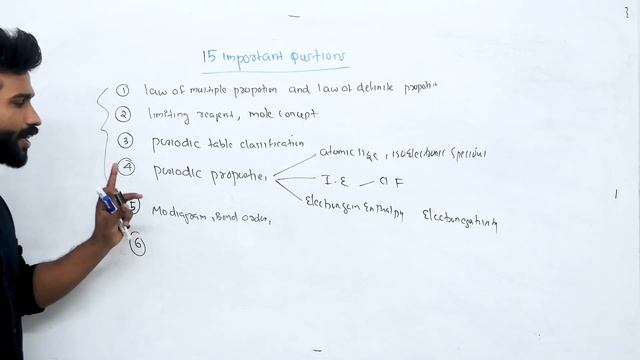 15 important Questions
① law of multiple propotion and law of definite propotion
② limiting reagent, mole concept
③ periodic table classification
④ periodic properties
atomic size, isoelectronic species
I.E —
Electrongain Enthalpy Electronegativity
⑤ Mo diagram, Bond order,
⑥